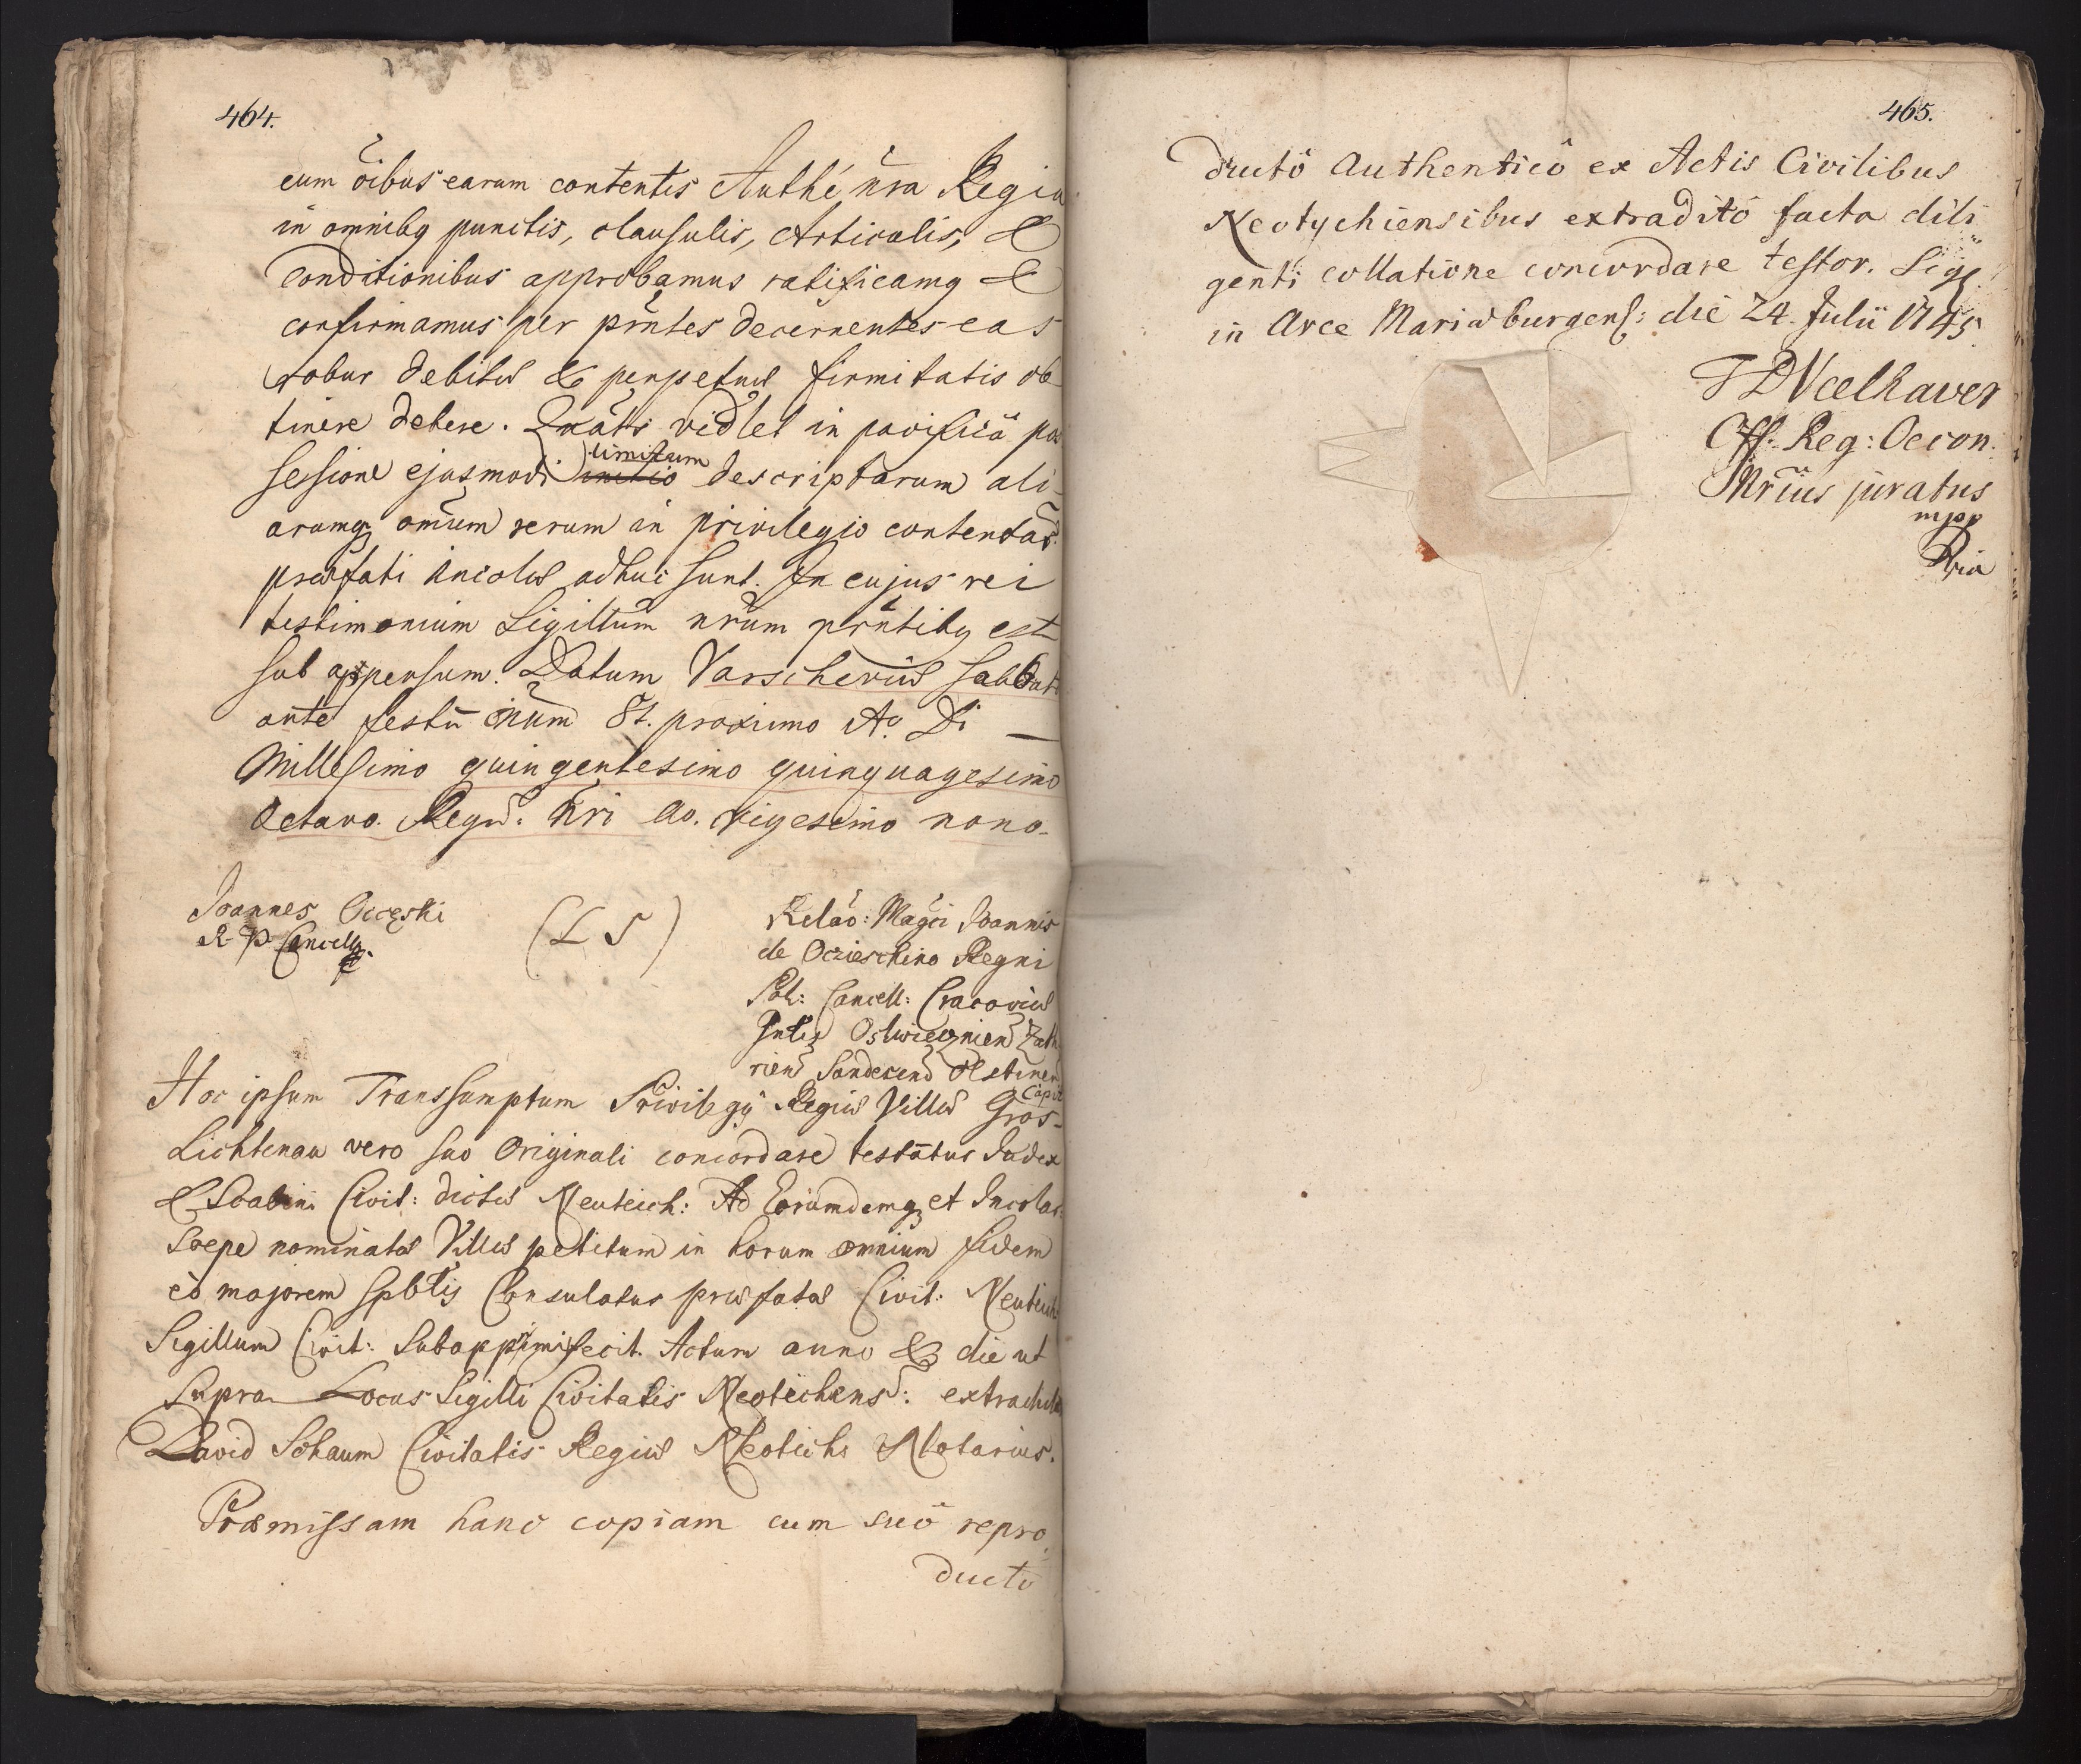 464.
cum oibus earum contentis Authe nra Regia
in omnibq punctis, clausulis, Articulis, &
Conditionibus approbamus ratificamq &
confirmamus per prntes decernentes eas
robur debitæ & perpetuæ firmitatis ob
tinere debere. Quats vidlet in pacifica pos
sessione ejusmodi limitum descriptarum ali-
arumq omium rerum in privilegio contentar
præfati incolæ adhuc sunt. In cujus rei
testimonium Sigillum nrum prntibq est
sub appensum. Datum Varscheviæ Sabbat
ante festu St. proximo Ao. Di
Millesimo quingentesimo quinquagesimo
Octavo. Regni: nri ao. vigesimo nono.
Joannes Ocęski
R. P. Cancell.
(L S)
Relao: Magci Joannis
de Oczieschino Regni
Pol: Cancell: Cracoviæ
Gntis Osswięcznien Zath
rien Sandecens Olstinen
Capit
Hoc ipsum Transsumptum Privilegij Regiæ Villæ Gros-
Lichtenau vero suo Originali concordare testatur Judex
& Scabini Civit: dictæ Neuteich: Ad Eorumdemq et Incolar
Soepe nominatæ Villæ petitum in horum omnium fidem
eo majorem Spbtis Consulatus præfatæ Civit: Neuteich
Sigillum Civit: Subapprimi fecit. Actum anno & die ut
Supra Locus Sigilli Civitatis Neoteichens: extradidit
David Schaum Civitatis Regiæ Neotichs Notarius.
Præmissam hanc copiam cum suô repro
ducto
465.
ductô Authenticô ex Actis Civilibus
Neotychiensibus extraditô facta dili
genti collatione concordare testor. Sig.
in Arce Mariæburgens: die 24. Julii 1745.
Off: Reg: Oecon:
Ntrius juratus
mpp